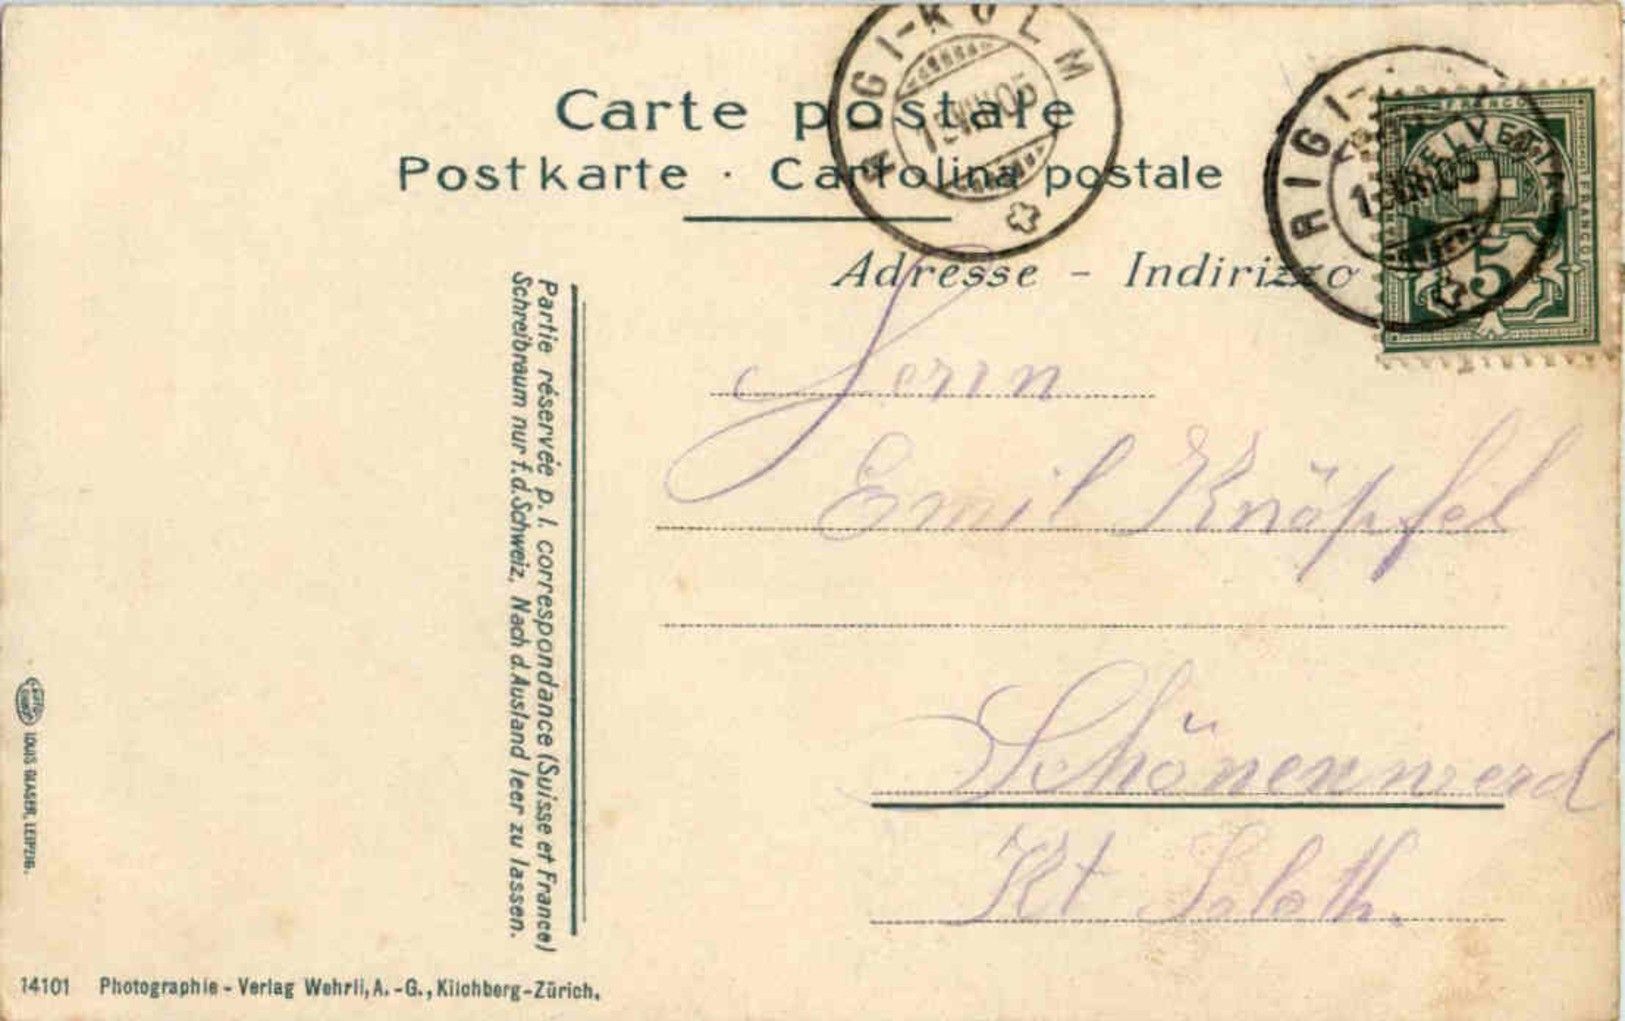 Carte postale
Postkarte · Cartolina postale
Adresse - Indirizzo
RIGI-KULM
RIGI-
FRANCO
HELVETIA
FRANCO
5
Herrn
Emil Knöpfel
Schönenwerd
Kt Soloth.
Partie réservée p. l. correspondance (Suisse et France)
Schreibraum nur f. d. Schweiz. Nach d. Ausland leer zu lassen.
LOUIS GLASER, LEIPZIG.
14101 Photographie-Verlag Wehrli, A.-G., Kilchberg-Zürich.